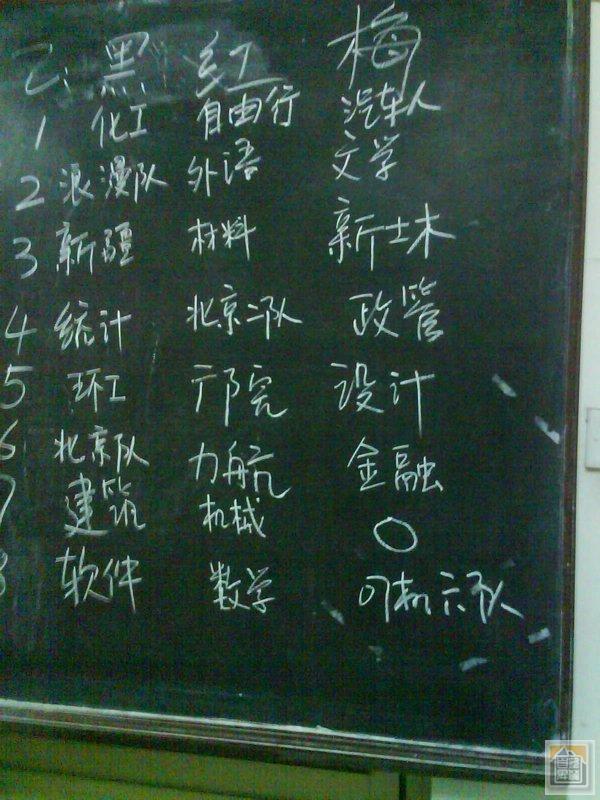 乙: 黑 红 梅
1 化工 自由行 汽车人
2 浪漫队 外语 文学
3 新疆 材料 新土木
4 统计 北京二队 政管
5 环工 邝完 设计
6 北京队 力航 金融
7 建筑 机械 〇
8 软件 数学 机六队